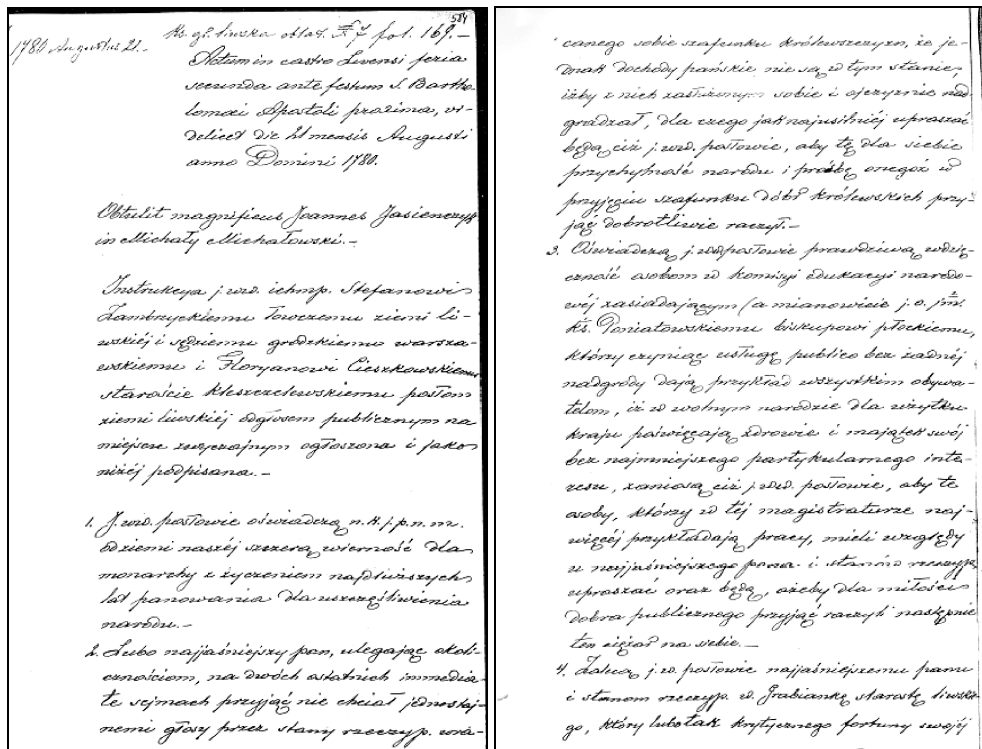 584
1780 Augustus 21.-
Ks. gr. liwska oblat. № 7 fol. 169.-
Actum in castro Livensi feria
secunda ante festum S. Bartho-
lomaei Apostoli proxima, vi-
delicet die 21 mensis Augusti
anno Domini 1780.
Obtulit magnificus Joannes Jasienczyk
in Michały Michałowski.-
Instrukcya j. wwd. ichmp. Stefanowi
Zambrzyckiemu łowczemu ziemi li-
wskiéj i sędziemu grodzkiemu warsza-
wskiemu i Floryanowi Cieszkowskiemu
staroście kleszczelewskiemu posłom
ziemi liwskiéj odgłosem publicznym na
miejscu zwyczajnym ogłoszona i jako
niżéj podpisana.-
1. J. wwd. posłowie oświadczą n. k. j. p. n. m.
od ziemi naszéj szczerą wierność dla
monarchy z życzeniem najdłuższych
lat panowania dla uszczęśliwienia
narodu.-
2. Lubo najjaśniejszy pan, ulegając okoli-
cznościom, na dwóch ostatnich immedia-
te sejmach przyjąć nie chciał jednostaj-
nemi głosy przez stany rzeczyp. wra-
canego sobie szafunku królewszczyzn, że je-
dnak dochody pańskie nie są w tym stanie,
iżby z nich zasłużonym sobie i ojczyznie nad-
gradzał, dla czego jak najusilniéj upraszać
będą ciż j. wwd. posłowie, aby tę dla siebie
przychylność narodu i prośbę onegoż w
przyjęciu szafunku dóbr królewskich przy-
jąć dobrotliwie raczył.-
3. Oświadczą j. wwd. posłowie prawdziwą wdzię-
czność osobom w komisyi edukacyi narodo-
wéj zasiadającym (a mianowicie j. o. jm.
ks. Poniatowskiemu biskupowi płockiemu,
który czyniąc usługę publico bez żadnéj
nadgrody dają przykład wszystkim obywa-
telom, iż w wolnym narodzie dla użytku
kraju poświęcają zdrowie i majątek swój
bez najmniejszego partykularnego inte-
resu, zaniosą ciż j. wwd. posłowie, aby te
osoby, którzy w téj magistraturze naj-
więcéj przykładają pracy, mieli względy
u najjaśniejszego pana i stanów rzeczyp.
upraszać oraz będą, ażeby dla miłości
dobra publicznego przyjąć raczyli następnie
ten ciężar na siebie.-
4. Zalecą j. w. posłowie najjaśniejszemu panu
i stanom rzeczyp. w. Grabiankę starostę liwskie-
go, który lubo tak krytycznego fortuny swojéj